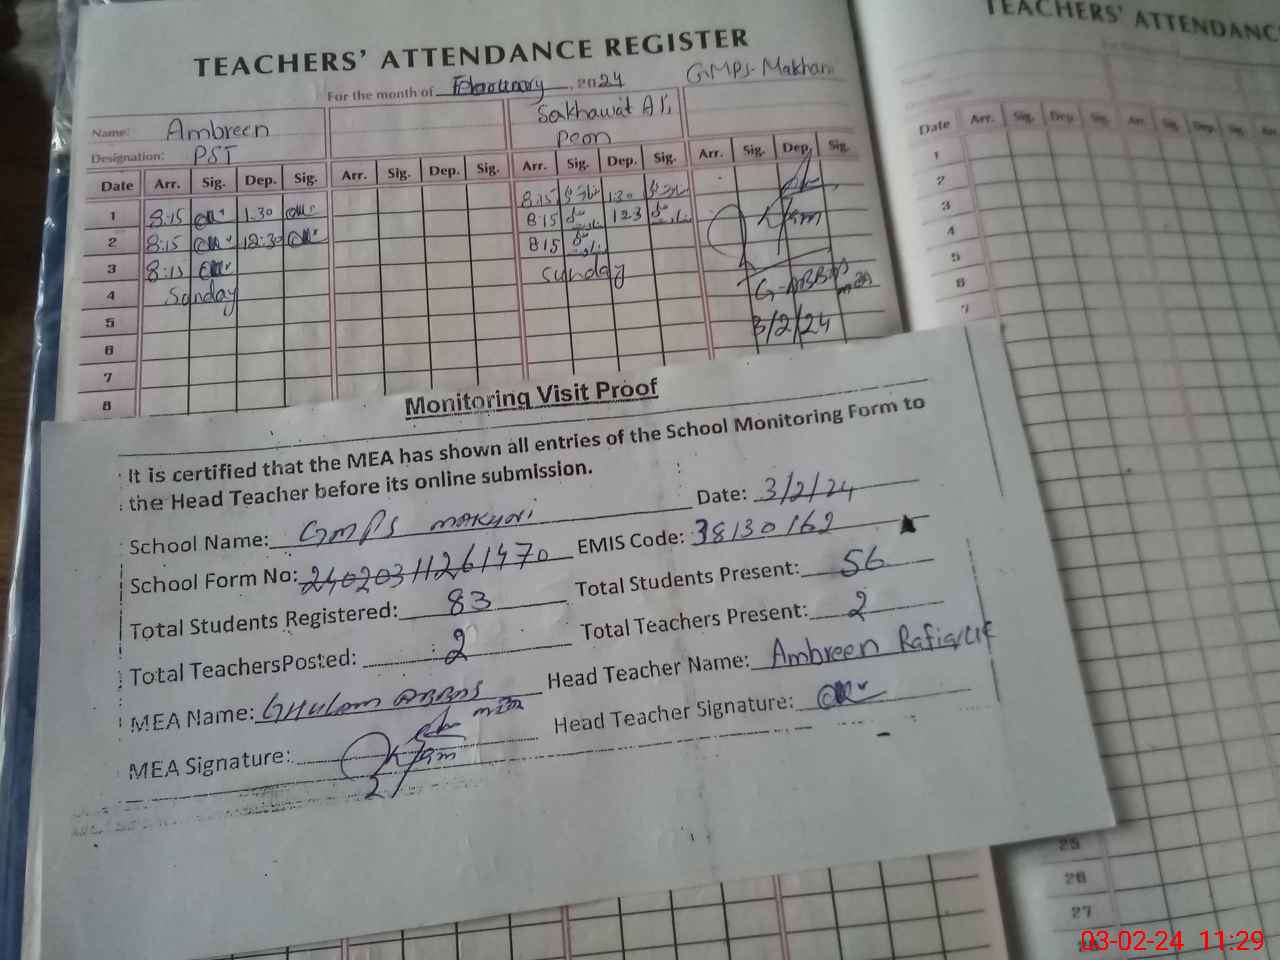 TEACHERS' ATTENDANCE REGISTER
For the month of February, 2024 GMPS. Makhani
Name: Ambreen Sakhawat Ali
Designation: PST Peon
Date Arr. Sig. Dep. Sig. Arr. Sig. Dep. Sig. Arr. Sig. Dep. Sig. Arr. Sig. Dep. Sig.
1 8:15 1:30 8:15 1:30
2 8:15 12:30 8 15 12 3
3 8:15 8 15
4 Sunday Sunday
5
6
7
8
3/2/24
Monitoring Visit Proof
It is certified that the MEA has shown all entries of the School Monitoring Form to
the Head Teacher before its online submission.
School Name: GMPS Date: 3/2/24
School Form No: 24020311261470 EMIS Code: 38130162
Total Students Registered: 83 Total Students Present: 56
Total TeachersPosted: 2 Total Teachers Present: 2
MEA Name: GHULAM ABBAS Head Teacher Name: Ambreen
MEA Signature: Head Teacher Signature:
TEACHERS' ATTENDANC
Date Arr. Sig. Dep. Sig. Arr. Sig. Dep. Sig.
1
2
3
4
5
6
7
25
26
27
03-02-24 11:29